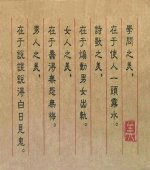 學問之美，
在于使人一頭霧水。
詩歌之美，
在于煽動男女出軌。
女人之美，
在于蠢得無怨無悔。
男人之美，
在于說謊說得白日見鬼。